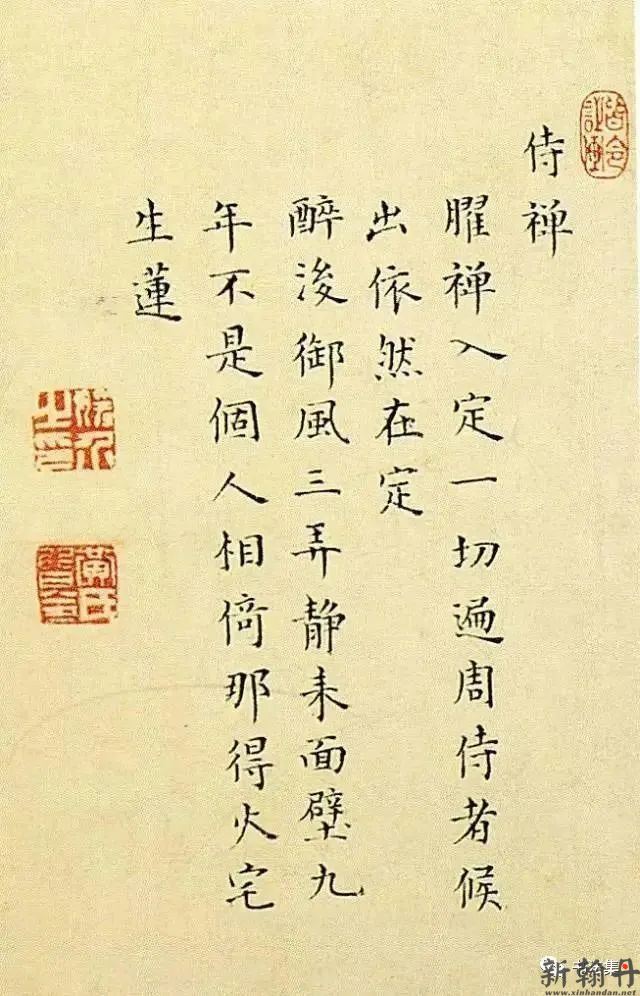 侍禅
臞禅入定一切遍周侍者候
出依然在定
醉後御風三弄静来面壁九
年不是個人相倚那得火宅
生蓮
集
新翰丹
www.xinhandan.net